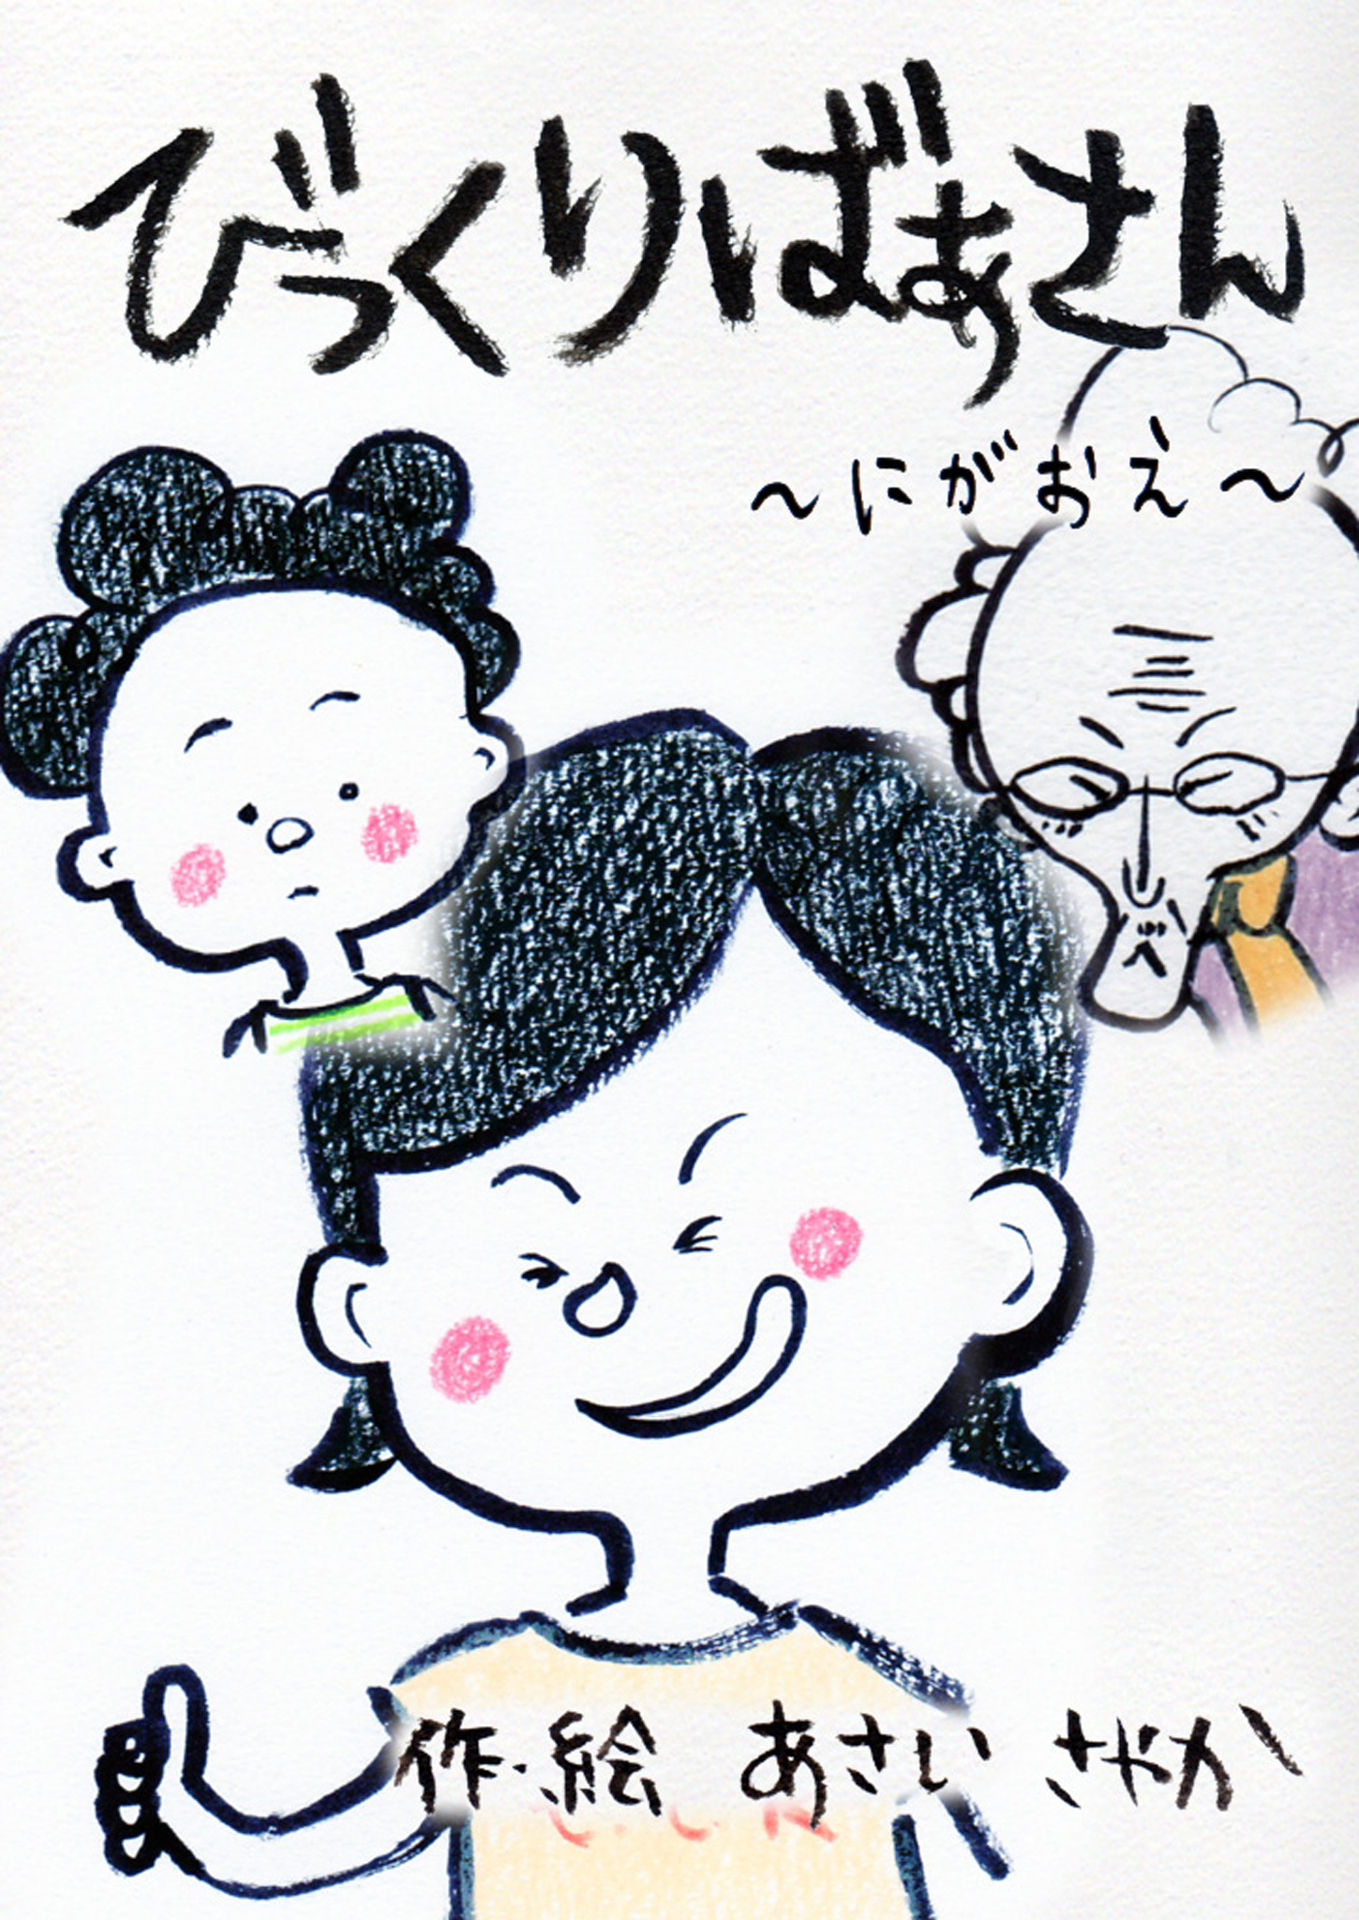 びっくりばぁさん
～にがおえ～
作・絵 あさい さやか